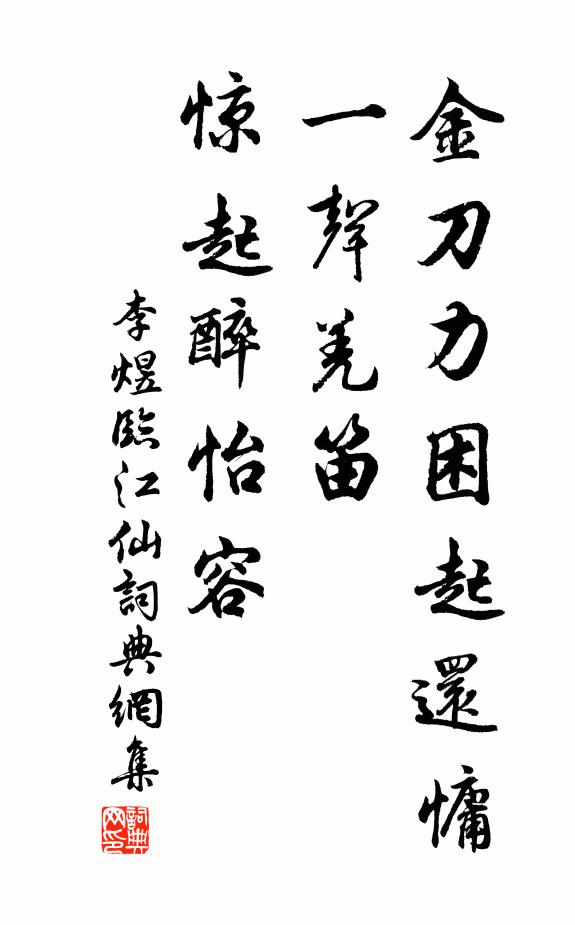 金刀力困起還慵
一聲羌笛
惊起醉怡容
李煜臨江仙詞典網集
詞典网印